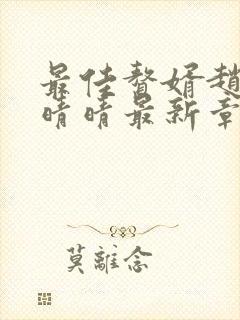 最佳贅婿趙
晴晴最新章
莫離念